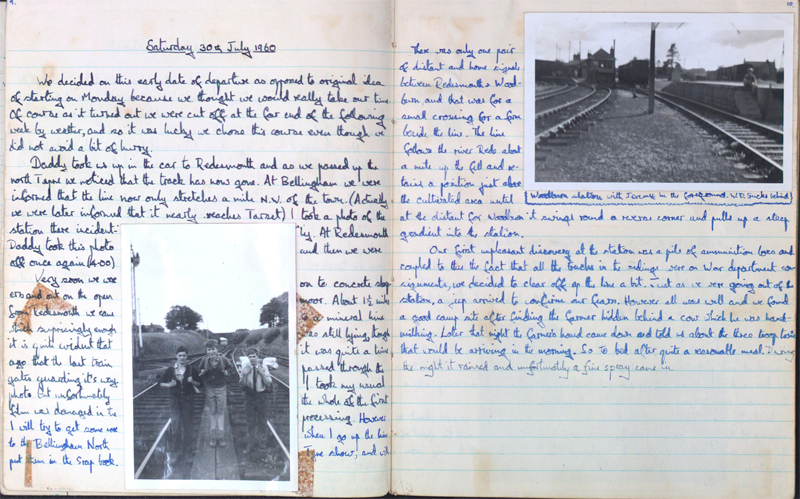 9.
Saturday 30th July 1960
We decided on this early date of departure as opposed to original idea
of starting on Monday because we thought we would really take our time.
Of course as it turned out we were cut off at the far end of the following
week by weather, and so it was lucky we chose this course even though we
did not avoid a bit of hurry.
Daddy took us up in the car to Redesmouth and as we passed up the
north Tyne we noticed that the track has now gone. At Bellingham we were
informed that the line now only stretches a mile N.W. of the town. (Actually
we were later informed that it nearly reaches Tarset) I took a photo of the
station there incident- ly. At Redesmouth
Daddy took this photo and then we were
off once again (14.00)
Very soon we were on to concrete
and out on the open moor. About 1½ miles
from Redesmouth we came to a mineral line
which surprisingly enough was still lying, though
it is quite evident that it was quite a time
ago that the last train passed through the
gates guarding it's way. I took my usual
photo but unfortunately the whole of the first
film was damaged in the processing. However
I will try to get some more when I go up the line
to the Bellingham North Tyne show, and will
put them in the scrap book.
10.
There was only one pair
of distant and home signals
between Redesmouth & Wood-
burn and that was for a
small crossing for a farm
beside the line. The line
follows the river Rede about
a mile up the fell and re-
tains a position just above
the cultivated area until
at the distant for Woodburn it swings round a reverse corner and pulls up a steep
gradient into the station.
Woodburn station with Tommy in the foreground. W.D. trucks behind
Our first unpleasant discovery at the station was a pile of ammunition boxes and
coupled to this the fact that all the trucks in the sidings were on War department co
signments, we decided to clear off up the line a bit. Just as we were going out of the
station, a jeep arrived to confirm our fears. However all was well and we found
a good camp site after finding the farmer hidden behind a cow which he was hand-
milking. Later that night the farmer's hand came down and told us about the three troop trains
that would be arriving in the morning. So to bed after quite a reasonable meal. During
the night it rained and unfortunately a fine spray came in